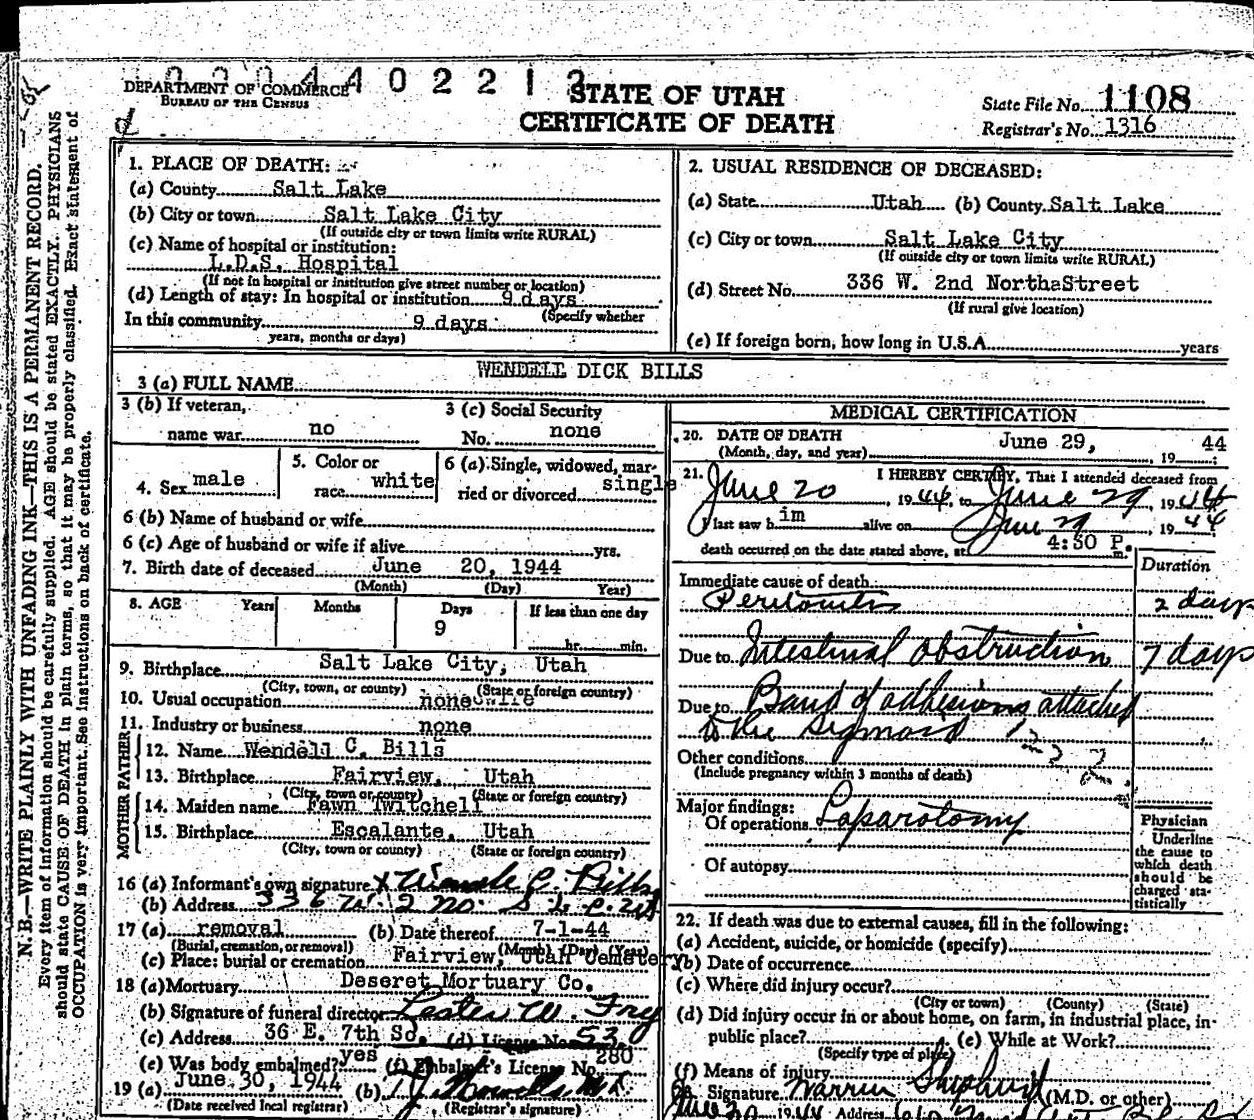 DEPARTMENT OF COMMERCE
BUREAU OF THE CENSUS
STATE OF UTAH
CERTIFICATE OF DEATH
State File No. 1108
Registrar's No. 1316
N. B.—WRITE PLAINLY WITH UNFADING INK—THIS IS A PERMANENT RECORD.
Every item of information should be carefully supplied. AGE should be stated EXACTLY. PHYSICIANS
should state CAUSE OF DEATH in plain terms, so that it may be properly classified. Exact statement of
OCCUPATION is very important. See instructions on back of certificate.
1. PLACE OF DEATH:
(a) County Salt Lake
(b) City or town Salt Lake City
(If outside city or town limits write RURAL)
(c) Name of hospital or institution:
L.D.S. Hospital
(If not in hospital or institution give street number or location)
(d) Length of stay: In hospital or institution 9 days
(Specify whether
In this community 9 days
years, months or days)
2. USUAL RESIDENCE OF DECEASED:
(a) State Utah (b) County Salt Lake
(c) City or town Salt Lake City
(If outside city or town limits write RURAL)
(d) Street No. 336 W. 2nd North Street
(If rural give location)
(e) If foreign born, how long in U.S.A. years
3 (a) FULL NAME WENDELL DICK BILLS
3 (b) If veteran,
name war no
3 (c) Social Security
No. none
4. Sex male
5. Color or
race white
6 (a) Single, widowed, mar-
ried or divorced single
6 (b) Name of husband or wife
6 (c) Age of husband or wife if alive yrs.
7. Birth date of deceased June 20, 1944
(Month) (Day) Year)
8. AGE Years Months Days If less than one day
9 hr. min.
9. Birthplace Salt Lake City, Utah
(City, town, or county) (State or foreign country)
10. Usual occupation none
11. Industry or business none
FATHER
12. Name Wendell C. Bills
13. Birthplace Fairview, Utah
(City, town or county) (State or foreign country)
MOTHER
14. Maiden name Fawn Twitchell
15. Birthplace Escalante, Utah
(City, town or county) (State or foreign country)
16 (a) Informant's own signature x Wendell C. Bills
(b) Address 336 W. 2 No. S. L. C. Ut
17 (a) removal (b) Date thereof 7-1-44
(Burial, cremation, or removal) (Month) (Day) (Year)
(c) Place: burial or cremation Fairview, Utah Cemetery
18 (a) Mortuary Deseret Mortuary Co.
(b) Signature of funeral director Lester W. Fry
(c) Address 36 E. 7th So. (d) License No. 53
(e) Was body embalmed? yes (f) Embalmer's License No. 280
19 (a) June 30, 1944 (b)
(Date received local registrar) (Registrar's signature)
MEDICAL CERTIFICATION
20. DATE OF DEATH June 29, 19 44
(Month, day, and year)
21. I HEREBY CERTIFY, That I attended deceased from
June 20, 1944, to June 29, 1944
I last saw him alive on June 29, 1944
death occurred on the date stated above, at 4:30 P. m.
Duration
Immediate cause of death
Peritonitis 2 days
Due to Intestinal obstruction 7 days
Due to Band of adhesions attached
to the sigmoid
Other conditions
(Include pregnancy within 3 months of death)
Major findings:
Of operations Laparotomy
Of autopsy
Physician
Underline
the cause to
which death
should be
charged sta-
tistically
22. If death was due to external causes, fill in the following:
(a) Accident, suicide, or homicide (specify)
(b) Date of occurrence
(c) Where did injury occur?
(City or town) (County) (State)
(d) Did injury occur in or about home, on farm, in industrial place, in
public place? (e) While at Work?
(Specify type of place)
(f) Means of injury
Signature Warren Shepherd (M.D. or other)
June 30 1944 Address